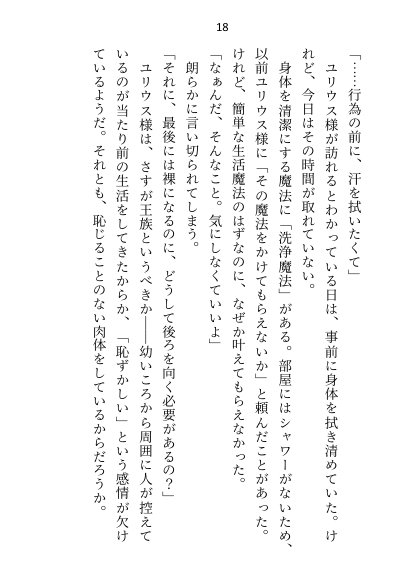 18
「……行為の前に、汗を拭いたくて」
　ユリウス様が訪れるとわかっている日は、事前に身体を拭き清めていた。け
れど、今日はその時間が取れていない。
　身体を清潔にする魔法に「洗浄魔法」がある。部屋にはシャワーがないため、
以前ユリウス様に「その魔法をかけてもらえないか」と頼んだことがあった。
けれど、簡単な生活魔法のはずなのに、なぜか叶えてもらえなかった。
「なぁんだ、そんなこと。気にしなくていいよ」
　朗らかに言い切られてしまう。
「それに、最後には裸になるのに、どうして後ろを向く必要があるの？」
　ユリウス様は、さすが王族というべきか――幼いころから周囲に人が控えて
いるのが当たり前の生活をしてきたからか、「恥ずかしい」という感情が欠け
ているようだ。それとも、恥じることのない肉体をしているからだろうか。